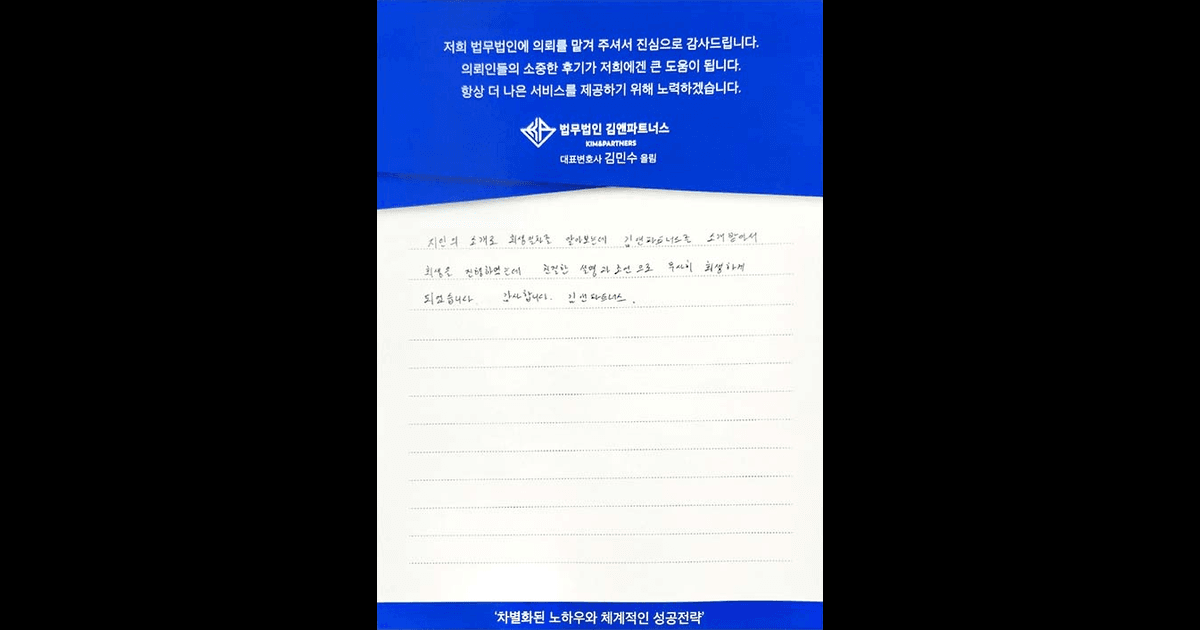 저희 법무법인에 의뢰를 맡겨 주셔서 진심으로 감사드립니다.
의뢰인들의 소중한 후기가 저희에겐 큰 도움이 됩니다.
항상 더 나은 서비스를 제공하기 위해 노력하겠습니다.
법무법인 김앤파트너스
KIM&PARTNERS
대표변호사 김민수 올림
지인의 소개로 회생절차를 알아보는데 김앤파트너스를 소개받아서
회생을 진행하였는데 친절한 설명과 조언으로 무사히 회생하게
되었습니다. 감사합니다. 김앤파트너스.
'차별화된 노하우와 체계적인 성공전략'